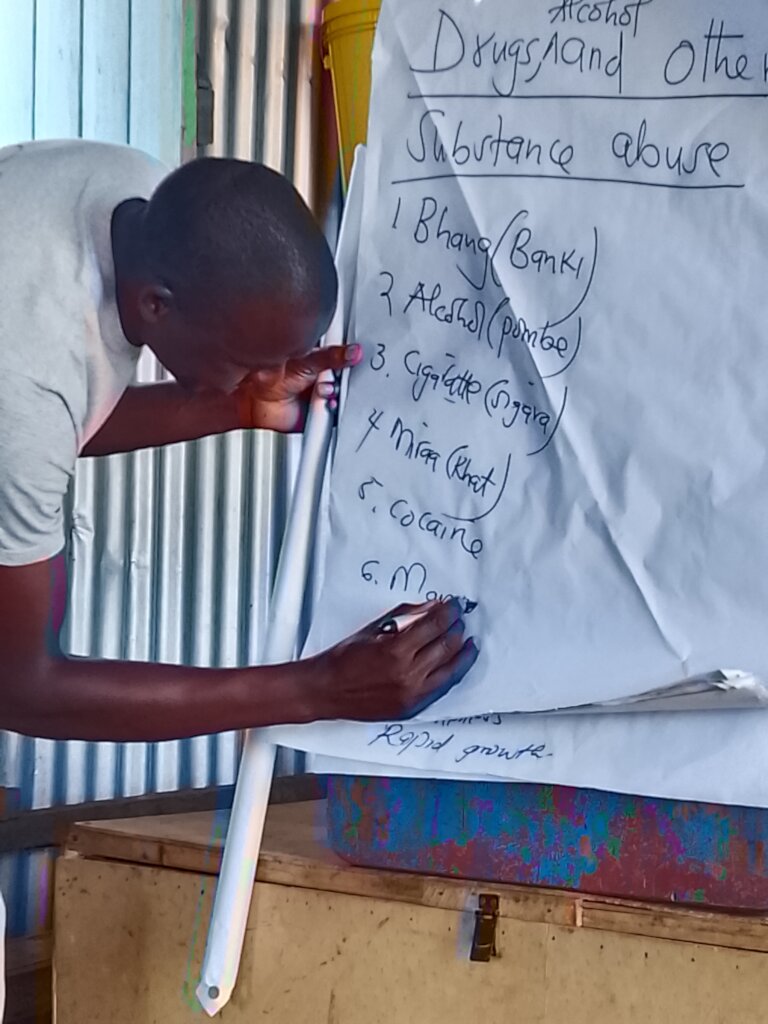 Alcohol
Drugs,^and Other
Substance abuse
1 Bhang (Banki)
2 Alcohol (pombe)
3. Cigaratte (Sigara)
4 Miraa (Khat)
5. Cocaine
6. Mar
Rapid growth